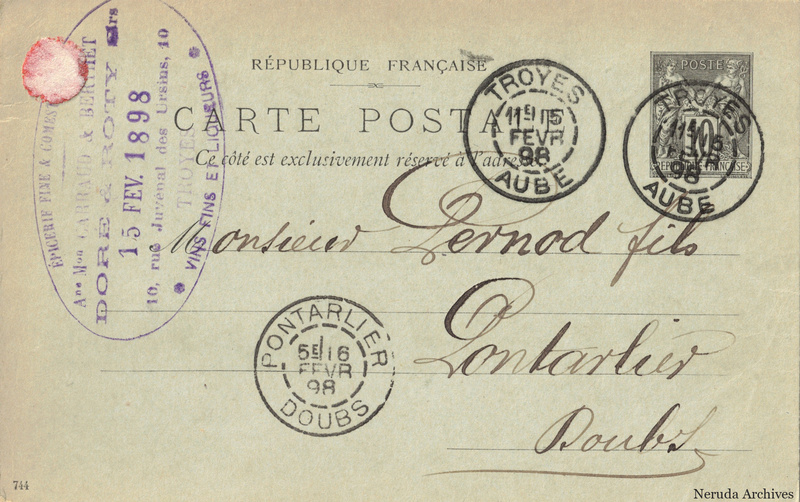 RÉPUBLIQUE FRANÇAISE
CARTE POSTA
Ce côté est exclusivement réservé à l'adresse
Monsieur Pernod fils
Pontarlier
Doubs
ÉPICERIE FINE & COMES
Anne Mon GARRAUD & BERTHET
DORÉ & ROTY
15 FEV. 1898
10, rue Juvénal des Ursins, 10
TROYES
VINS FINS ET LIQUEURS
TROYES
11E 15
FEVR
98
AUBE
POSTES
10
RÉPUBLIQUE FRANÇAISE
TROYES
98
AUBE
PONTARLIER
5E 16
FEVR
98
DOUBS
744
Neruda Archives